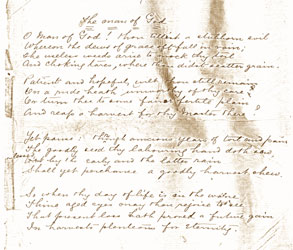 The man of God
O Man of God! thou tillest a stubborn soil
Whereon the dews of grace oft fall in vain;
The useless weeds arise to mock thy toil
And choking tares, where thou didst scatter grain.
Patient and hopeful, wilt thou still remain
On a rude heath, unmindful of thy care
Or turn thee to some fairer fertile plain
And reap a harvest for thy Master there?
Yet pause; through anxious years of toil and pain
The goodly seed thy labouring hand doth sow
the early and the latter rain
Shall yet perchance a goodly harvest show.
So when thy day of life is on the wane
Thine aged eyes may then rejoice to see
That present loss hath proved a future gain
In harvests plenteous for Eternity.